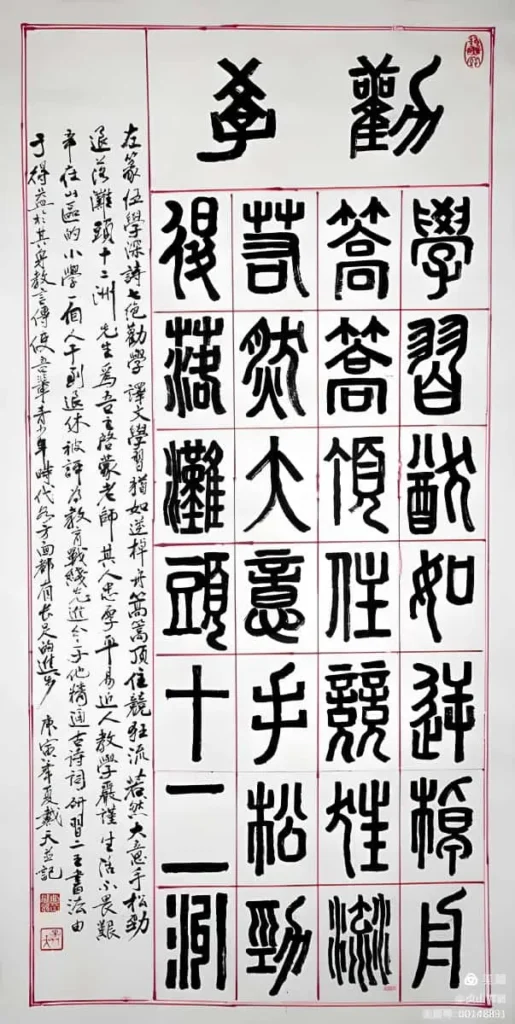 勸學
學習猶如逆棹舟
篙篙頂住競狂流
若然大意手松勁
退落灘頭十二洲
左篆伍學深詩七絕勸學 譯文學習猶如逆棹舟篙篙頂住競狂流 若然大意手松勁
退落灘頭十二洲 先生為吾之啓蒙老師其人忠厚平易近人教學嚴謹生活不畏艱
辛在山區的小學一個人干到退休被評為教育戰綫先進分子他精通古詩詞研習二王書法由
于得益於其身教言傳使吾輩青少年時代各方面都有長足的進步 庚寅年夏戴天並記
美篇
美篇号 80148891